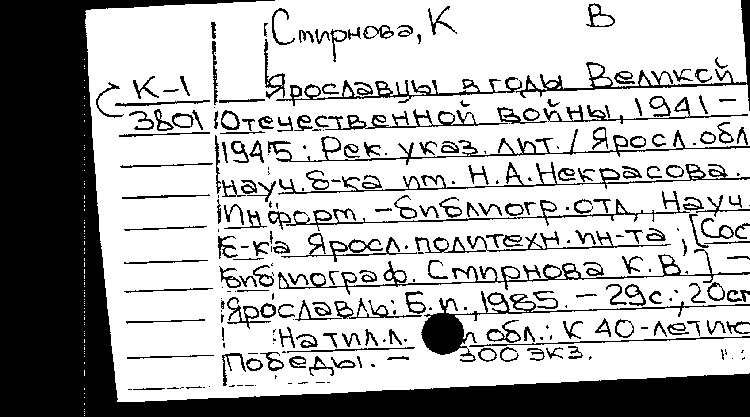 Смирнова, К В
К-1 Ярославцы в годы Великой
3801 Отечественной войны, 1941 –
1945 : Рек. указ. лит. / Яросл. обл
науч. б-ка им. Н.А. Некрасова.
Информ. – библиогр. отд., Науч.
б-ка Яросл. политехн. ин-та ; [Сос
библиограф. Смирнова К. В.] –
Ярославль : Б. и., 1985. – 29 с. ; 20 см
На тил. л. и обл.: К 40-летию
Победы. – 300 экз.